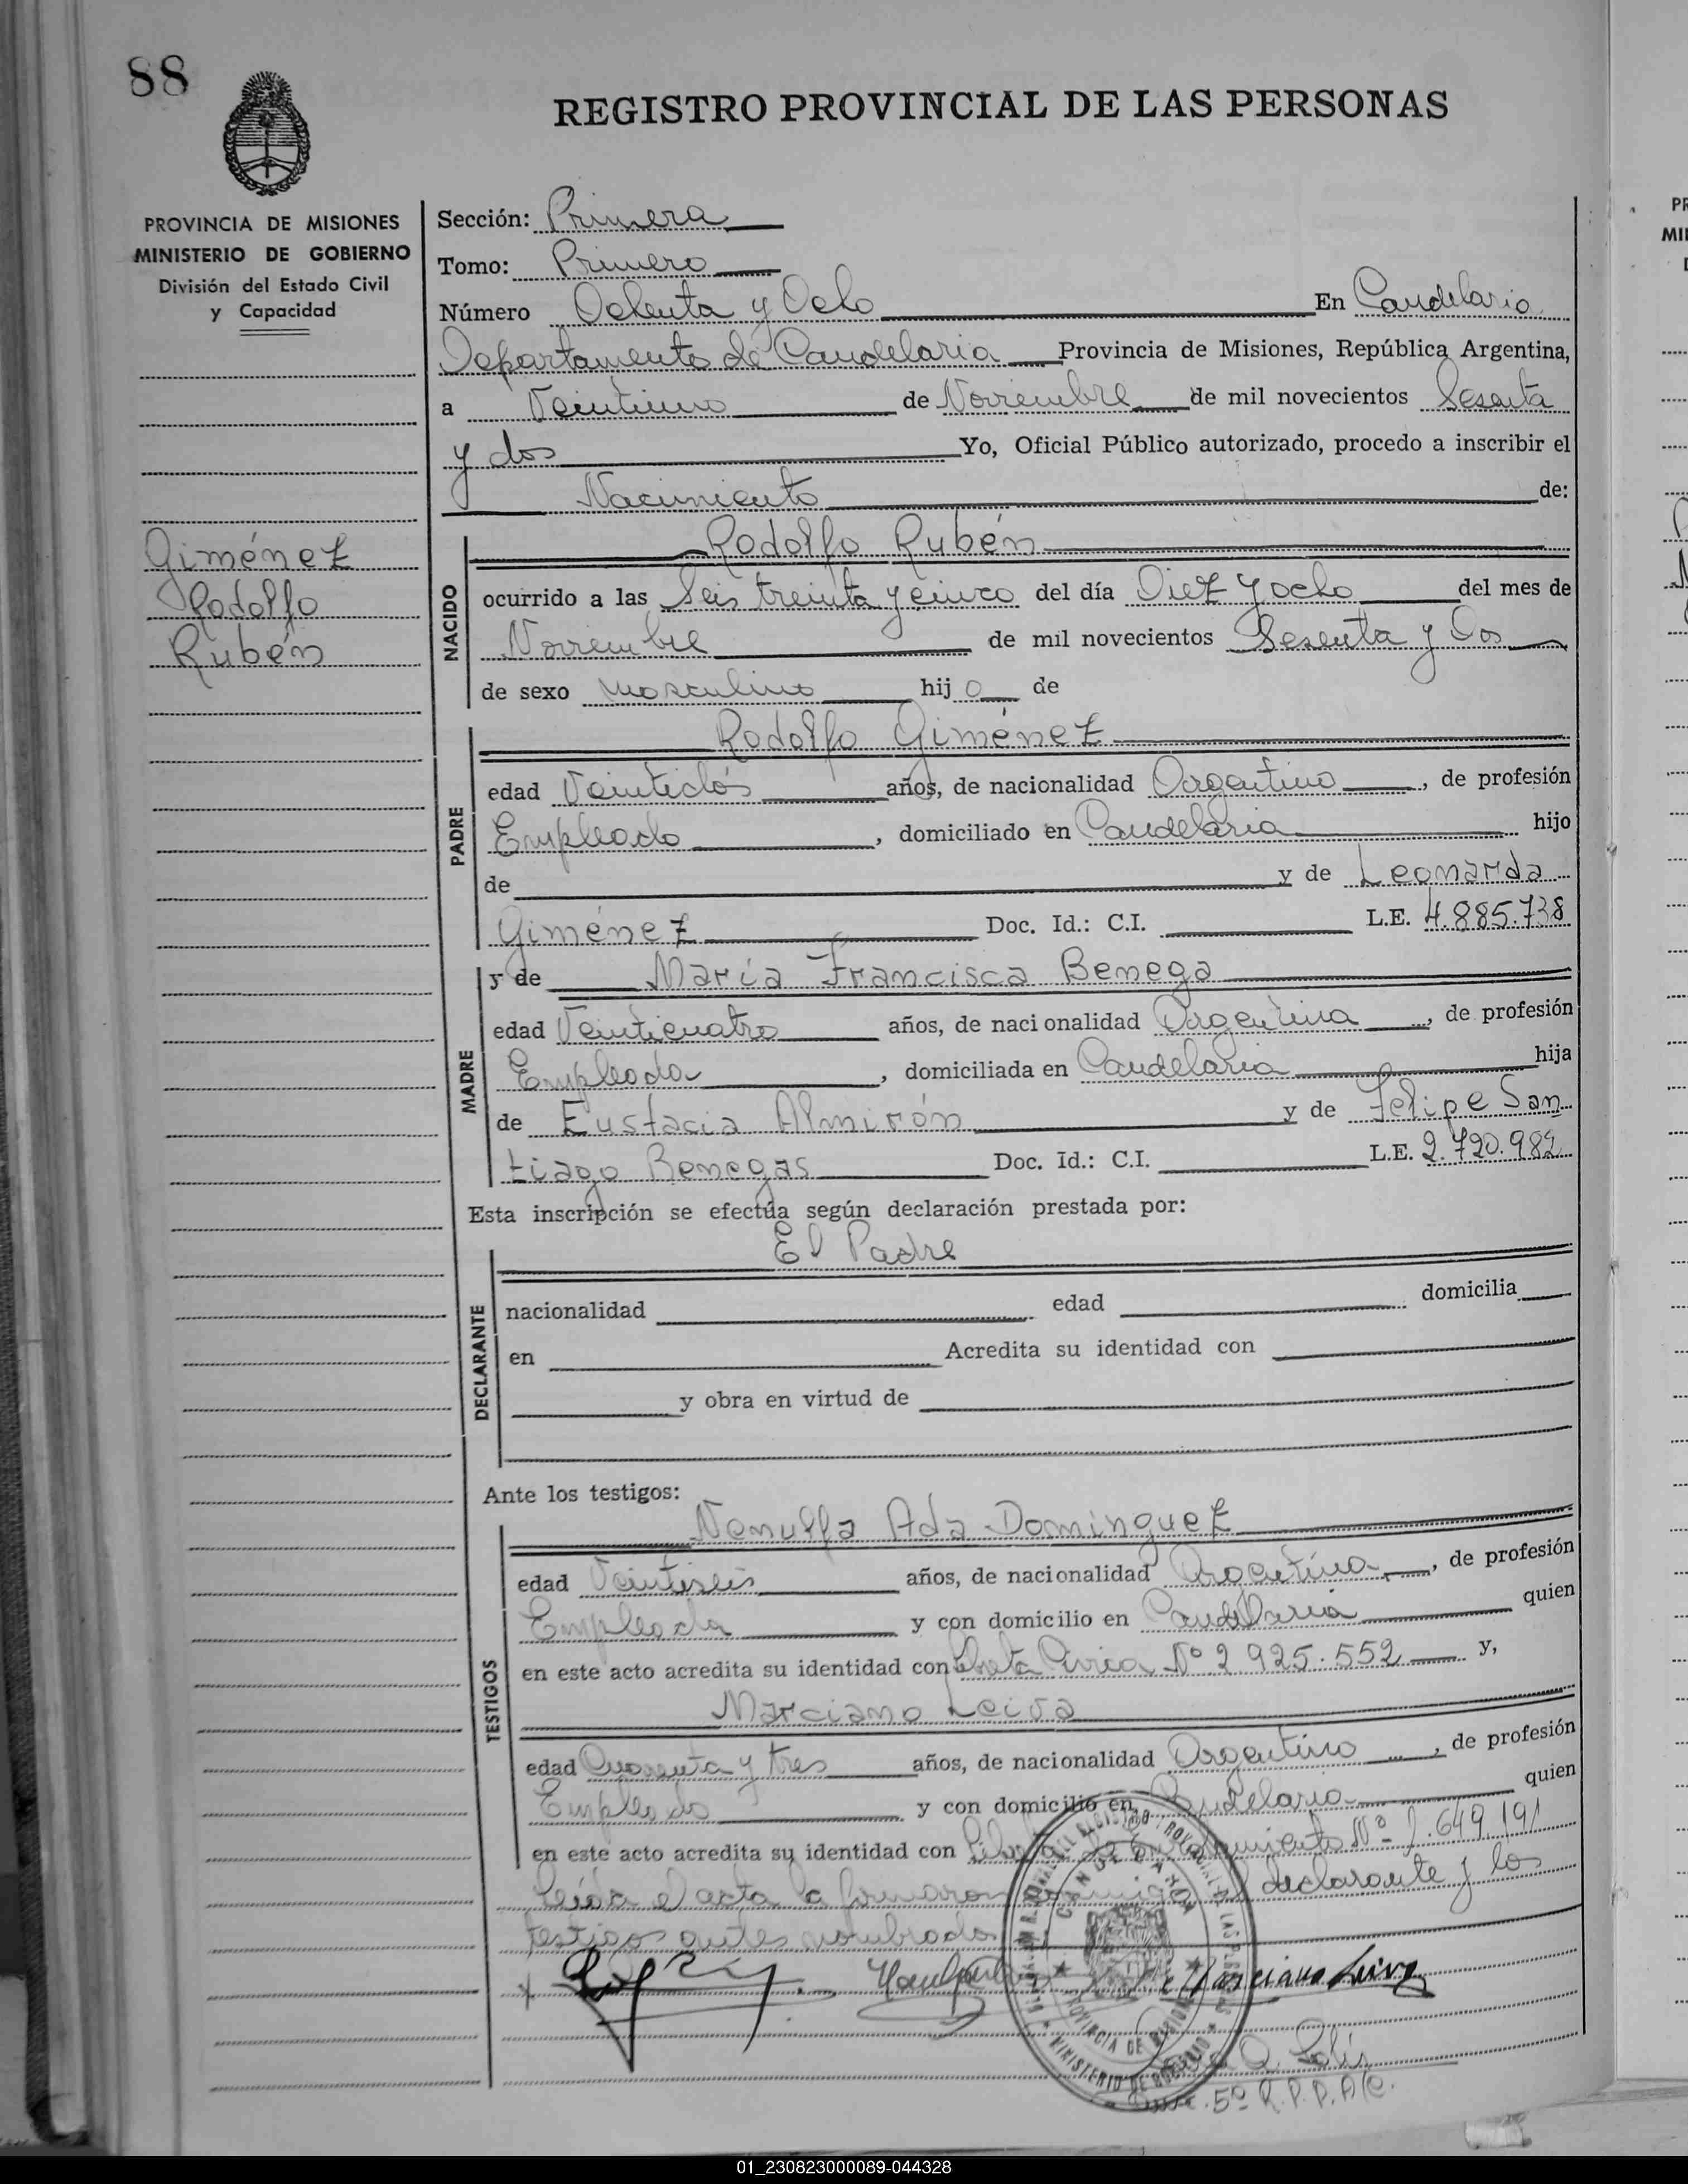 88
REGISTRO PROVINCIAL DE LAS PERSONAS
PROVINCIA DE MISIONES
MINISTERIO DE GOBIERNO
División del Estado Civil
y Capacidad
Giménez
Rodolfo
Rubén
Sección: Primera
Tomo: Primero
Número Ochenta y Ocho En Candelaria
Departamento de Candelaria Provincia de Misiones, República Argentina,
a Veintiuno de Noviembre de mil novecientos Sesenta
y dos Yo, Oficial Público autorizado, procedo a inscribir el
Nacimiento de:
NACIDO
Rodolfo Rubén
ocurrido a las Seis treinta y cinco del día Diez y ocho del mes de
Noviembre de mil novecientos Sesenta y Dos
de sexo masculino hijo de
PADRE
Rodolfo Giménez
edad Veintidós años, de nacionalidad Argentino, de profesión
Empleado, domiciliado en Candelaria hijo
de y de Leonarda
Giménez Doc. Id.: C.I. L.E. 4.885.738
MADRE
y de María Francisca Benega
edad Veinticuatro años, de nacionalidad Argentina, de profesión
Empleada, domiciliada en Candelaria hija
de Eustacia Almirón y de Felipe San
tiago Benegas Doc. Id.: C.I. L.E. 2.720.982
Esta inscripción se efectúa según declaración prestada por:
DECLARANTE
El Padre
nacionalidad edad domicilia
en Acredita su identidad con
y obra en virtud de
Ante los testigos:
TESTIGOS
Nenulfa Ada Dominguez
edad Veintiseis años, de nacionalidad Argentina, de profesión
Empleada y con domicilio en Candelaria quien
en este acto acredita su identidad con Libreta Cívica Nº 2.925.552 y,
Marciano Leiva
edad Cuarenta y tres años, de nacionalidad Argentino, de profesión
Empleado y con domicilio en Candelaria quien
en este acto acredita su identidad con Libreta de Enrolamiento Nº 1.649.191
Leída el acta la firmaron conmigo el declarante y los
testigos antes nombrados
Marciano Leiva
MINISTERIO DE GOBIERNO
PROVINCIA DE MISIONES
Solis
5º R.P.P.
01_230823000089-044328